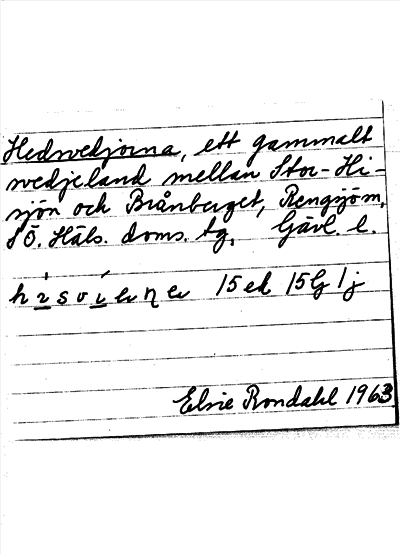 Hedsvedjorna, ett gammalt
svedjeland mellan Stor-Hi-
sjön och Brånberget, Rengsjö sn,
SÖ. Häls. doms. tg, Gävl. l.
15 ek 15G 1j
Elsie Rondahl 1963